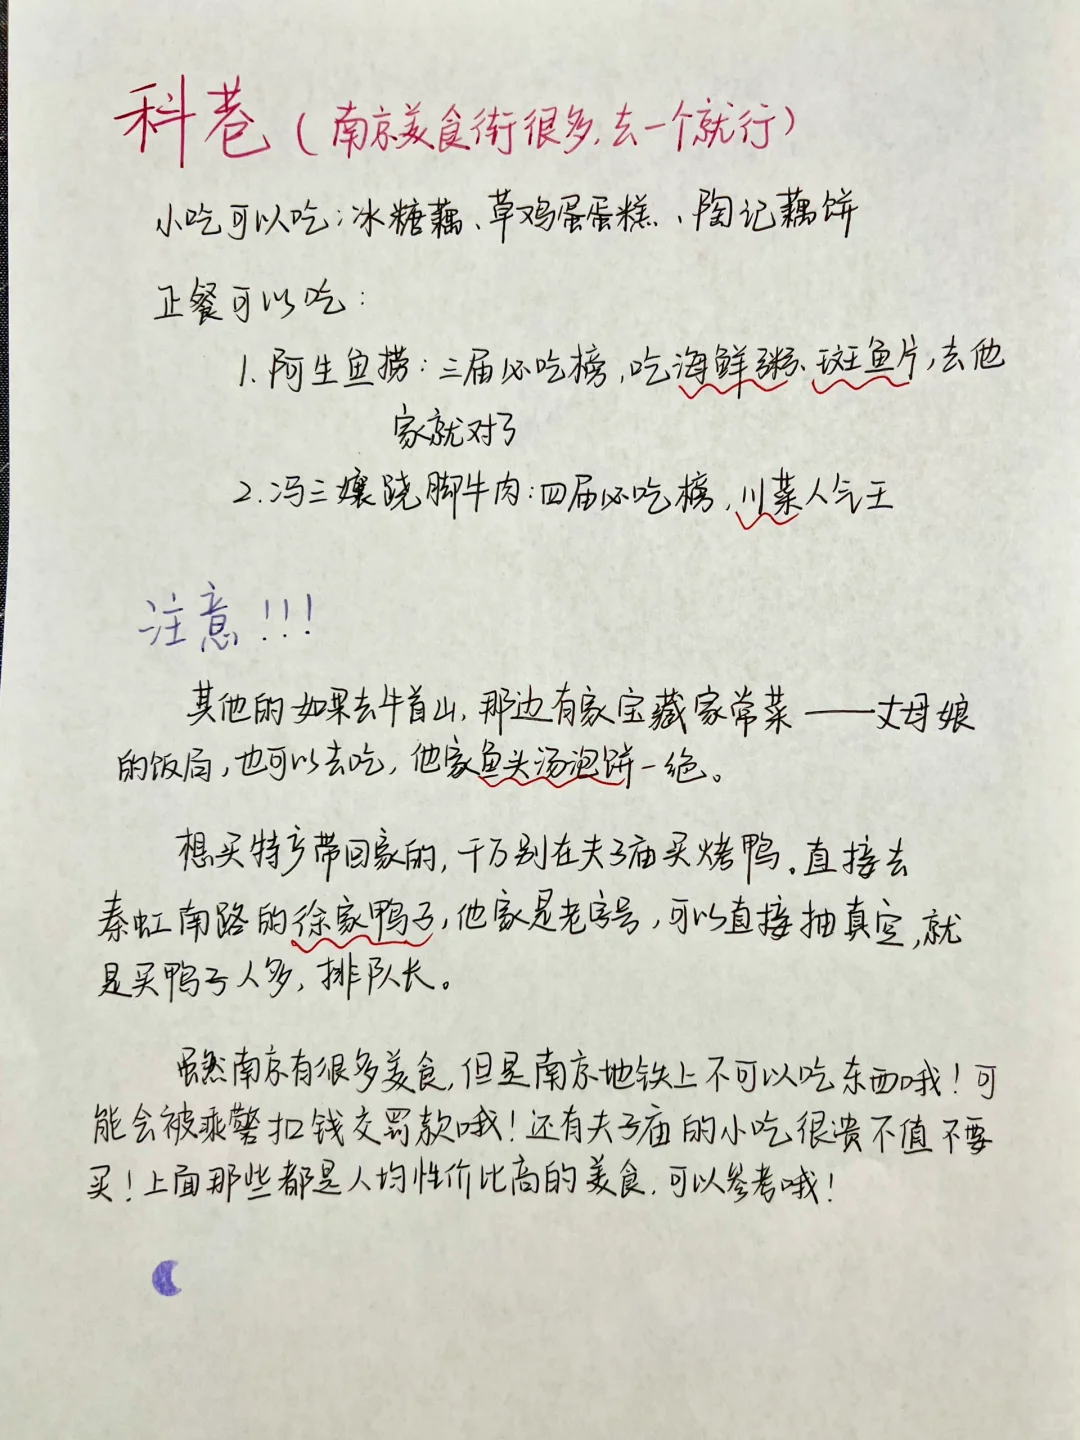 科巷（南京美食街很多，去一个就行）
小吃可以吃：冰糖藕、草鸡蛋蛋糕、陶记藕饼
正餐可以吃：
1. 阿生鱼捞：三届必吃榜，吃海鲜粥、斑鱼片，去他
家就对了
2. 冯三孃跷脚牛肉：四届必吃榜，川菜人气王
注意！！！
其他的如果去牛首山，那边有家宝藏家常菜——丈母娘
的饭局，也可以去吃，他家鱼头汤泡饼一绝。
想买特产带回家的，千万别在夫子庙买烤鸭。直接去
秦虹南路的徐家鸭子，他家是老字号，可以直接抽真空，就
是买鸭子人多，排队长。
虽然南京有很多美食，但是南京地铁上不可以吃东西哦！可
能会被乘警扣钱交罚款哦！还有夫子庙的小吃很贵不值不要
买！上面那些都是人均性价比高的美食，可以参考哦！